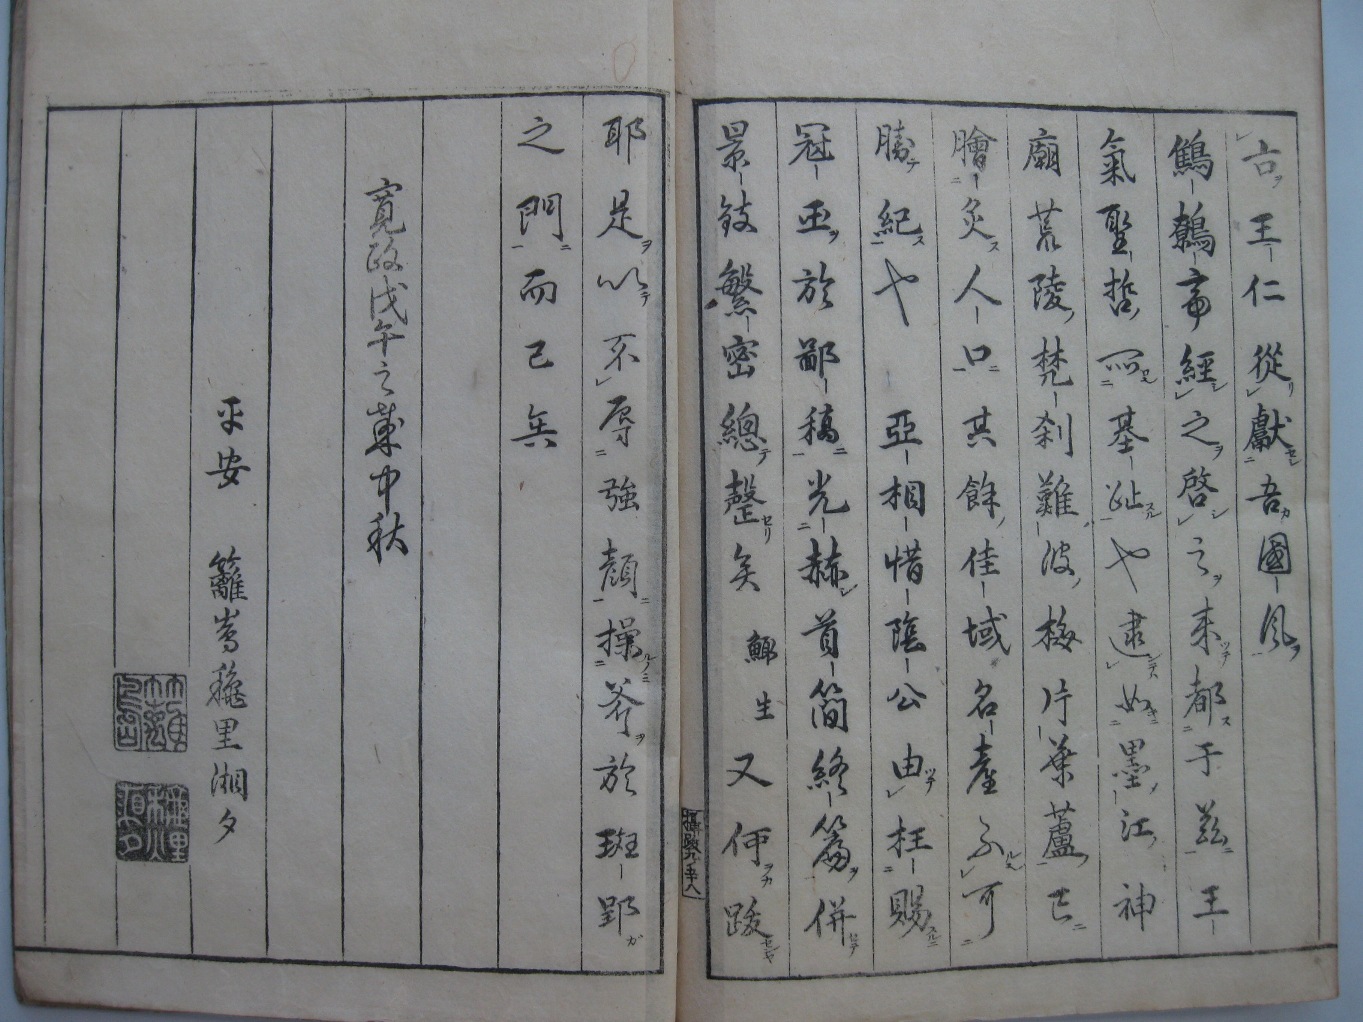 王仁從獻吾國風
鷦鷯帝經之啓之来都于茲王
氣聖哲所基趾也逮如墨江神
廟荒陵梵刹難波梅片葉蘆已
膾炙人口其餘佳域名産不可
勝紀也 亞相惜陰公由枉賜
冠玉於鄙稿光赫首簡終篇併
景鼓繁密總整矣 鯫生又何跋
耶是以不辱強顔操斧於班郢
之門而已矣
寛政戊午之中秋
平安 籬嶌穐里湘夕